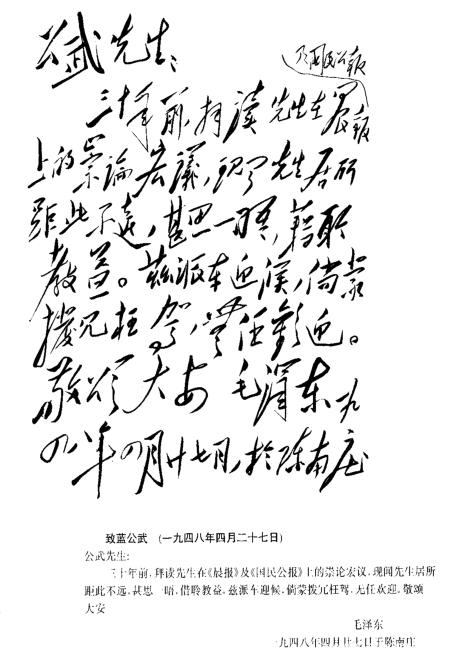 公武先生：
及国民公报
三十年前，拜读先生在晨报
上的崇论宏议，现闻先生居所
距此不远，甚思一晤，藉聆
教益。兹派车迎候，倘蒙
拨冗枉驾，无任欢迎。
敬颂大安 毛泽东 一九
四八年四月廿七日，于陈南庄
致蓝公武 (一九四八年四月二十七日)
公武先生：
三十年前，拜读先生在《晨报》及《国民公报》上的崇论宏议，现闻先生居所
距此不远，甚思一晤，借聆教益，兹派车迎候，倘蒙拨冗枉驾，无任欢迎，敬颂
大安
毛泽东
一九四八年四月廿七日于陈南庄